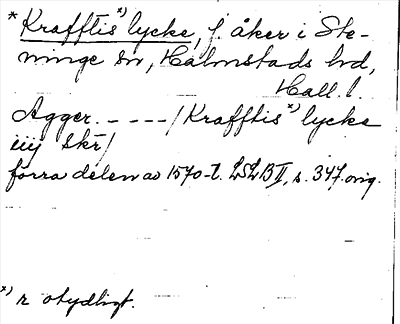 * Krafftis*) lycke, f. åker i Ste-
ninge sn, Halmstads hd,
Hall. l.
Agger. ----/Krafftis*) lycke
iiij skr/
förra delen av 1570-t. LSLB II, s. 347. orig.
*) r otydligt.